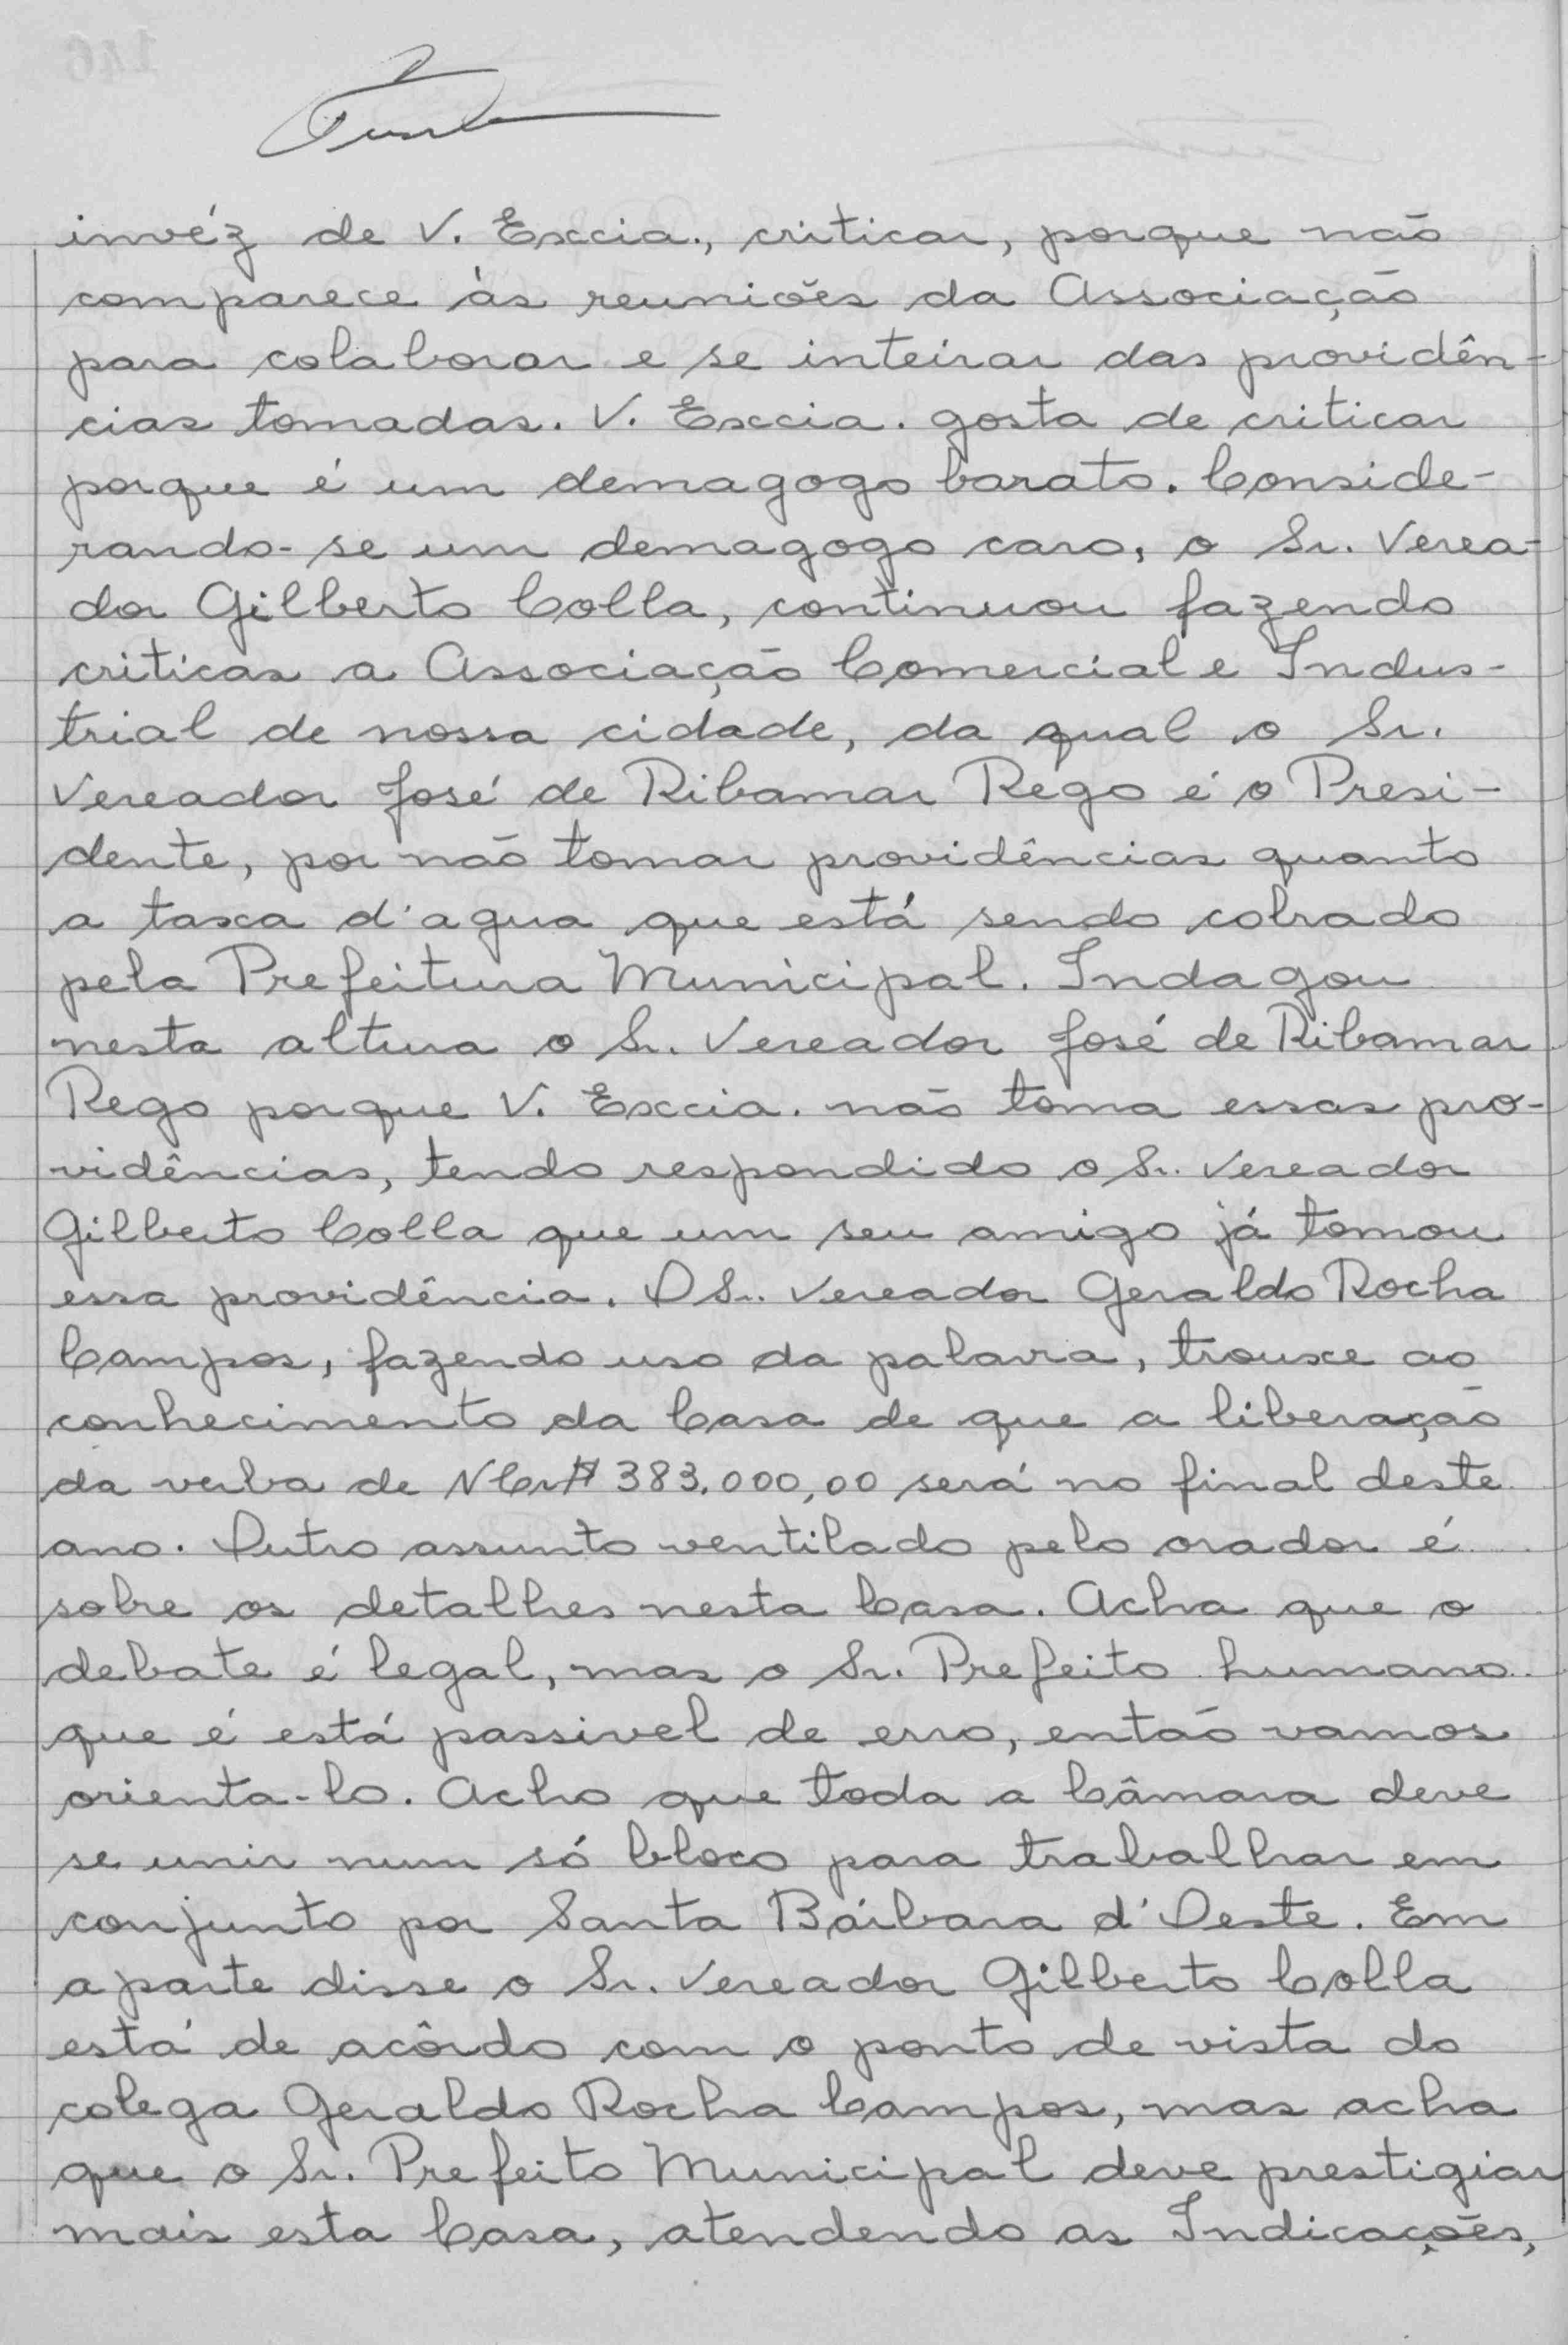 invéz de V. Excia., criticar, porque não
comparece às reuniões da Associação
para colaborar e se inteirar das providên-
cias tomadas. V. Excia. gosta de criticar
porque é um demagogo barato. Conside-
rando-se um demagogo caro, o Sr. Verea-
dor Gilberto Colla, continuou fazendo
criticas a Associação Comercial e Indus-
trial de nossa cidade, da qual o Sr.
Vereador José de Ribamar Rego é o Presi-
dente, por não tomar providências quanto
a taxa d'agua que está sendo cobrado
pela Prefeitura Municipal. Indagou
nesta altura o Sr. Vereador José de Ribamar
Rego porque V. Excia. não toma essas pro-
vidências, tendo respondido o Sr. Vereador
Gilberto Colla que um seu amigo já tomou
essa providência. O Sr. Vereador Geraldo Rocha
Campos, fazendo uso da palavra, trouxe ao
conhecimento da Casa de que a liberação
da verba de NCr$ 383.000,00 será no final deste
ano. Outro assunto ventilado pelo orador é
sobre os detalhes nesta Casa. Acha que o
debate é legal, mas o Sr. Prefeito humano
que é está passivel de erro, então vamos
orienta-lo. Acho que toda a Câmara deve
se unir num só bloco para trabalhar em
conjunto por Santa Bárbara d'Oeste. Em
aparte disse o Sr. Vereador Gilberto Colla
está de acôrdo com o ponto de vista do
colega Geraldo Rocha Campos, mas acha
que o Sr. Prefeito Municipal deve prestigiar
mais esta Casa, atendendo as Indicações,